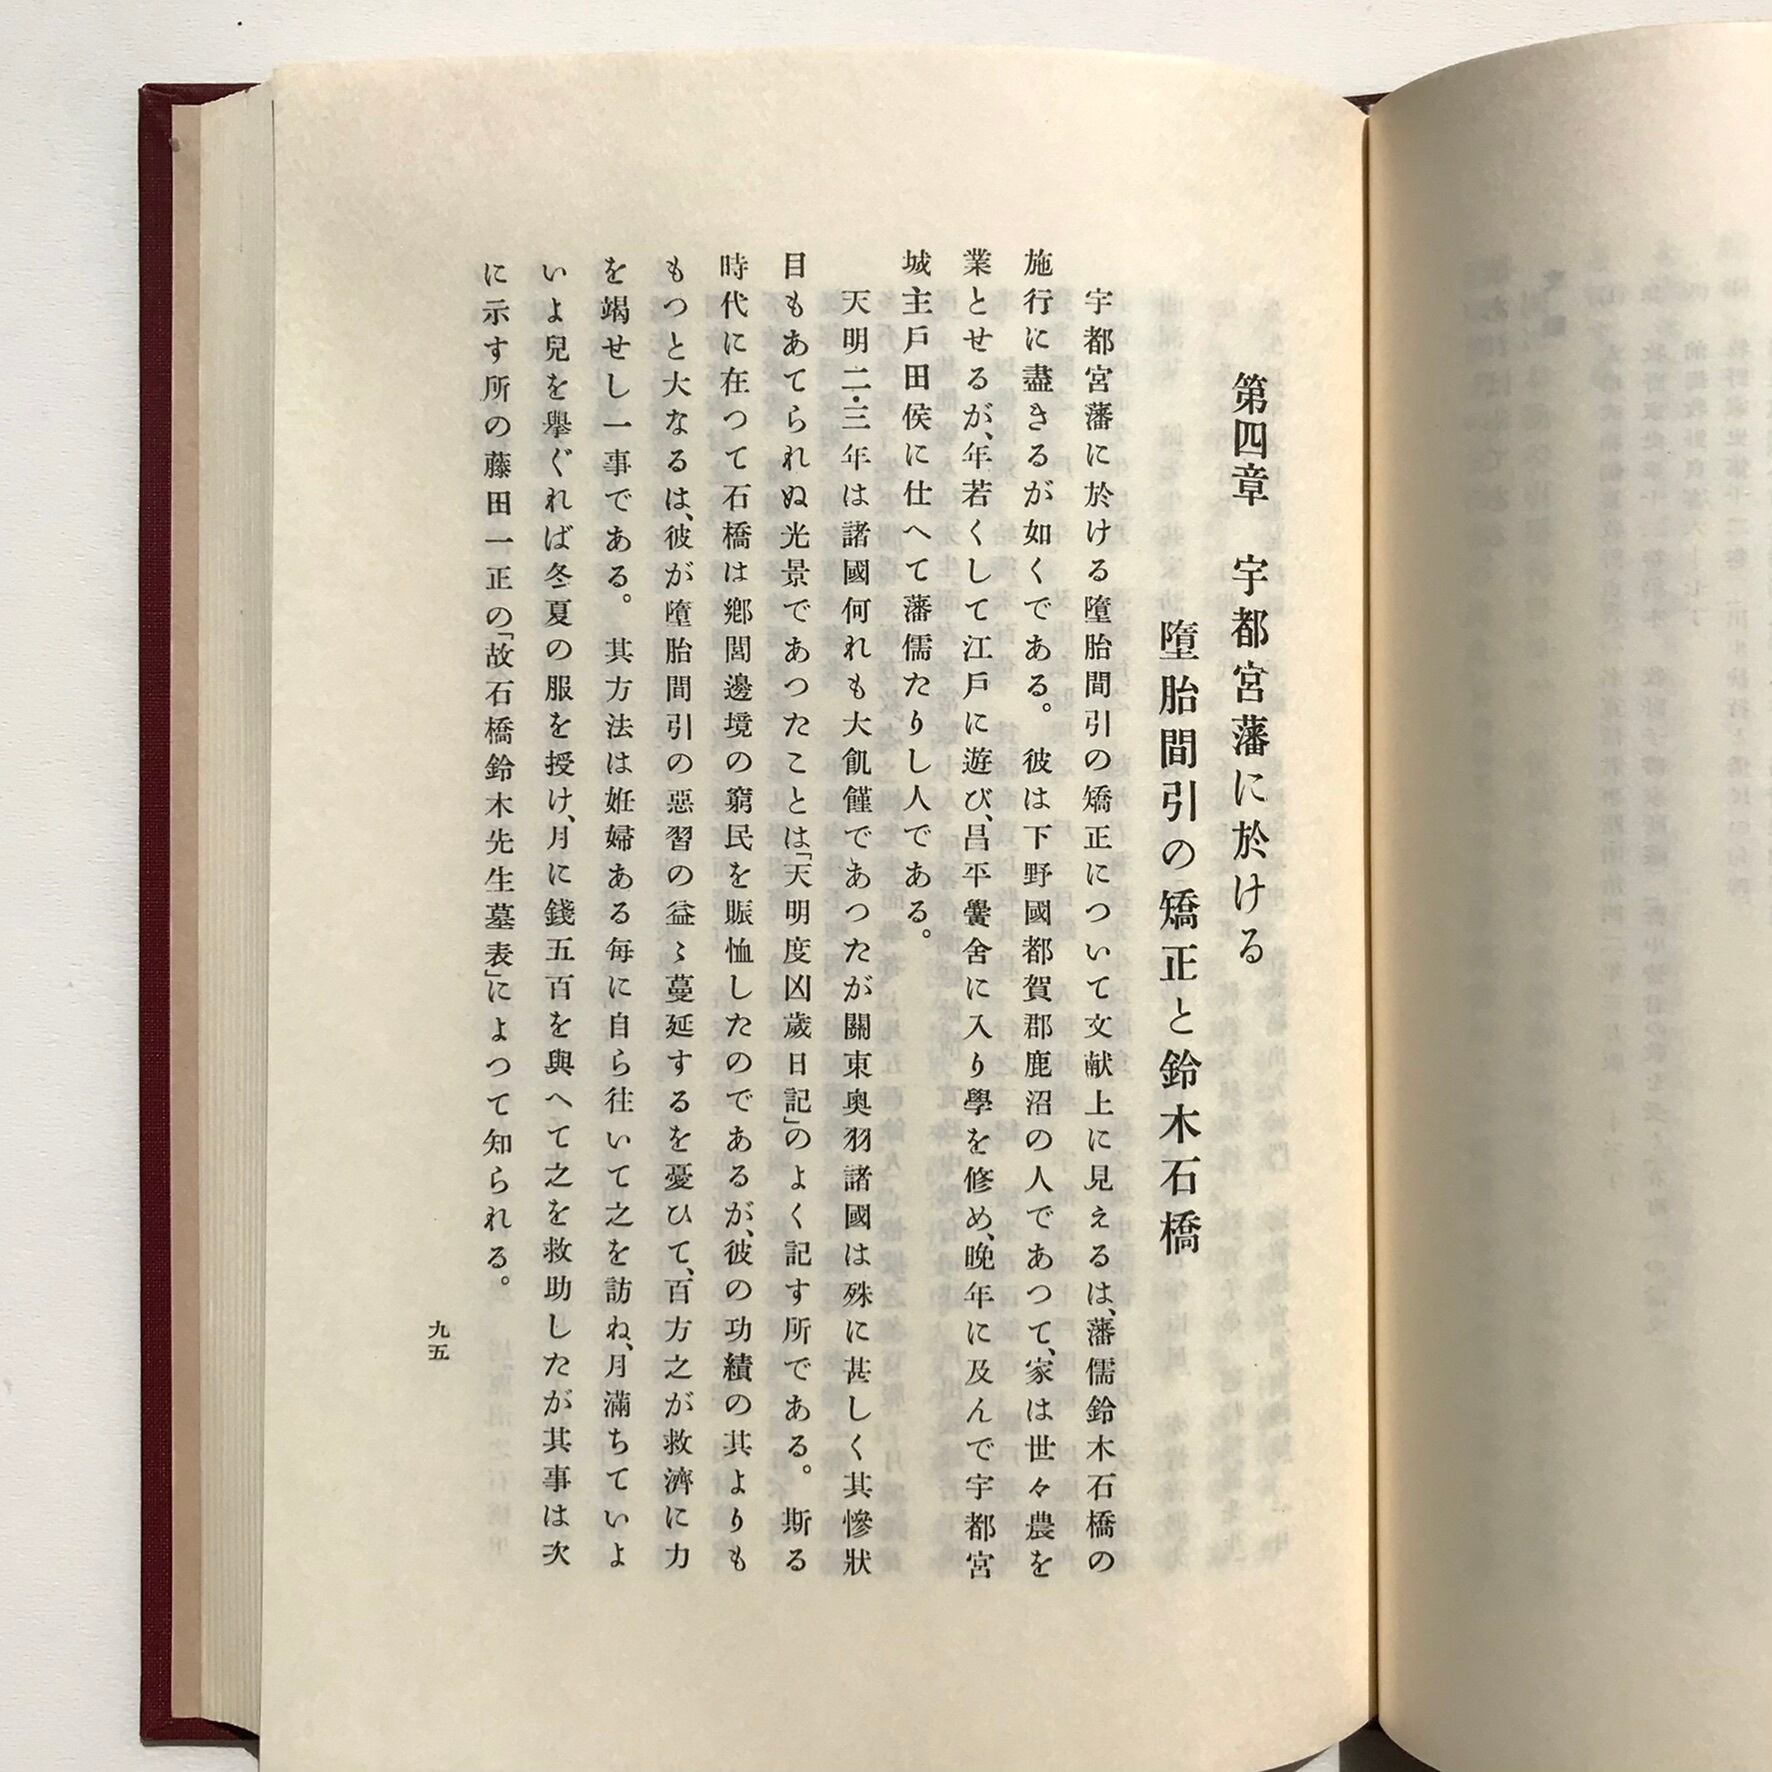 第四章　宇都宮藩に於ける
墮胎間引の矯正と鈴木石橋
宇都宮藩に於ける墮胎間引の矯正について文献上に見えるは、藩儒鈴木石橋の
施行に盡きるが如くである。彼は下野國都賀郡鹿沼の人であつて、家は世々農を
業とせるが、年若くして江戸に遊び、昌平黌舍に入り學を修め、晩年に及んで宇都宮
城主戸田侯に仕へて藩儒たりし人である。
天明二・三年は諸國何れも大飢饉であつたが關東奥羽諸國は殊に甚しく其慘狀
目もあてられぬ光景であつたことは「天明度凶歲日記」のよく記す所である。斯る
時代に在つて石橋は鄕閭邊境の窮民を賑恤したのであるが、彼の功績の其よりも
もつと大なるは、彼が墮胎間引の惡習の益〻蔓延するを憂ひて、百方之が救濟に力
を竭せし一事である。其方法は姙婦ある每に自ら往いて之を訪ね、月滿ちていよ
いよ兒を擧ぐれば冬夏の服を授け、月に錢五百を與へて之を救助したが其事は次
に示す所の藤田一正の「故石橋鈴木先生墓表」によつて知られる。
九五